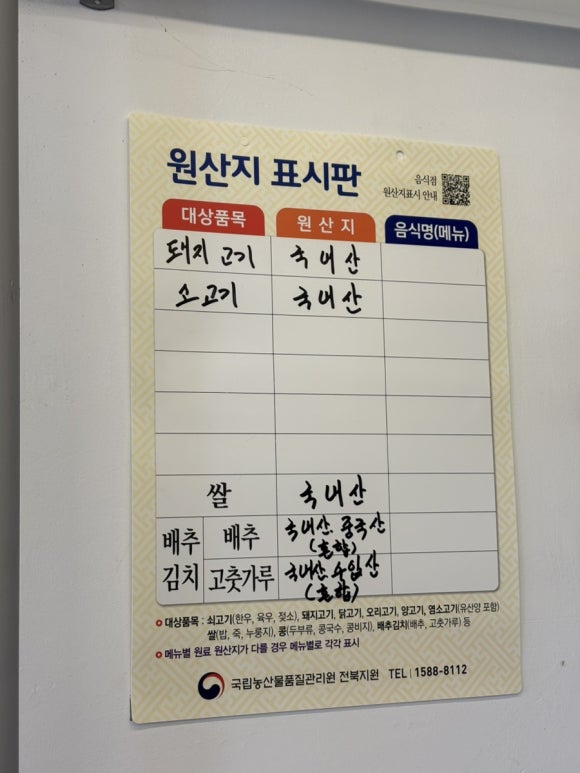 원산지 표시판
음식점
원산지표시 안내
대상품목 원산지 음식명(메뉴)
돼지고기 국내산
소고기 국내산
쌀 국내산
배추김치 배추 국내산, 중국산 (혼합)
고춧가루 국내산, 수입산 (혼합)
대상품목 : 쇠고기(한우, 육우, 젖소), 돼지고기, 닭고기, 오리고기, 양고기, 염소고기(유산양 포함)
쌀(밥, 죽, 누룽지), 콩(두부류, 콩국수, 콩비지), 배추김치(배추, 고춧가루) 등
메뉴별 원료 원산지가 다를 경우 메뉴별로 각각 표시
국립농산물품질관리원 전북지원 TEL | 1588-8112